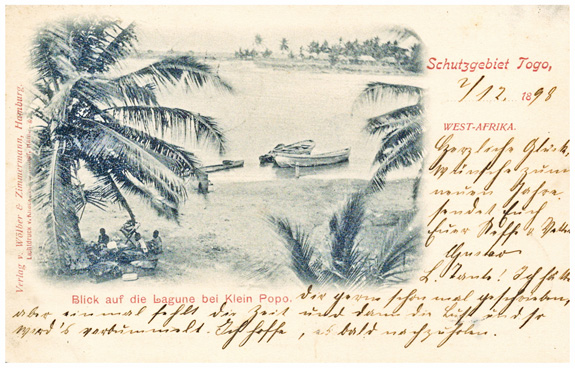 Schutzgebiet Togo,
7/12. 1898
WEST-AFRIKA.
Herzliche Glück-
wünsche zum
neuen Jahre
sendet Euch
Euer Neffe & Vetter
Gustav
L. Tante! Ich hätte
Blick auf die Lagune bei Klein Popo. Dir gern schon mal geschrieben,
aber einmal fehlt die Zeit und dann die Lust und so
wird's verbummelt. Ich hoffe, es bald nachzuholen.
Verlag v. Wölber & Zimmermann, Hamburg.
Lichtdruck v.